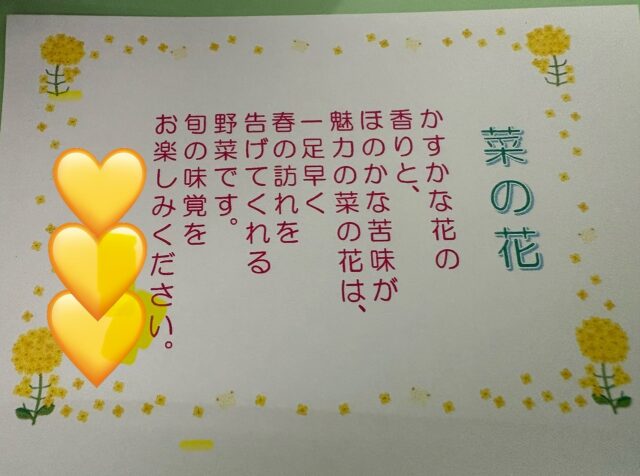 菜の花
かすかな花の
香りと、
ほのかな苦味が
魅力の菜の花は、
一足早く
春の訪れを
告げてくれる
野菜です。
旬の味覚を
お楽しみください。